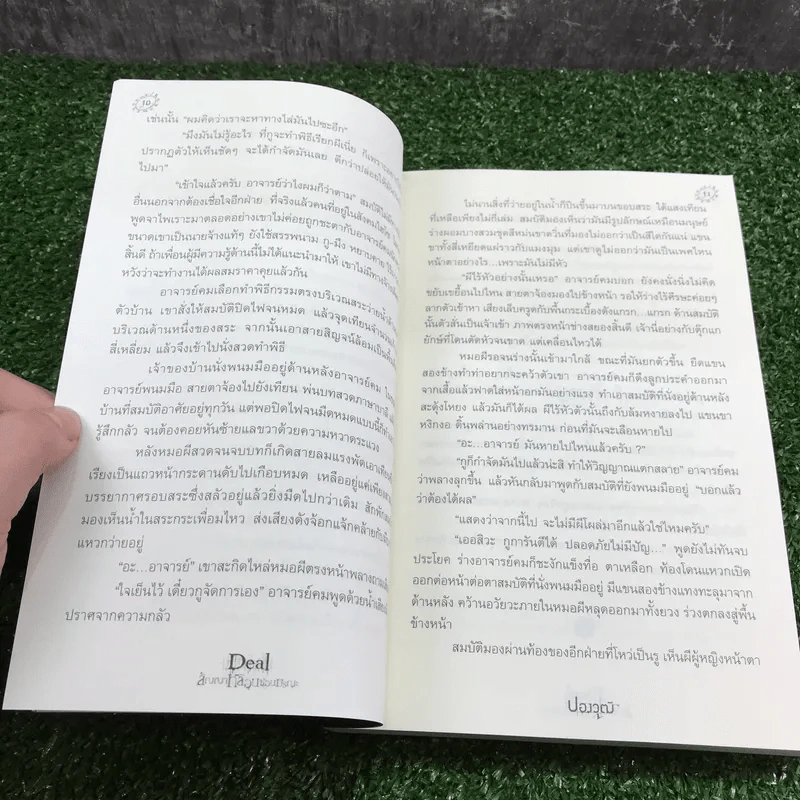 10
เช่นนั้น “ผมคิดว่าเราจะหาทางไล่มันไปซะอีก”
“มึงมันไม่รู้อะไร ที่กูจะทำพิธีเรียกผีเนี่ย ก็เพราะ
ปรากฏตัวให้เห็นชัดๆ จะได้กำจัดมันเลย ดีกว่าปล่อยให้
ไปมา”
“เข้าใจแล้วครับ อาจารย์ว่าไงผมก็ว่าตาม” สมบัติ
อื่นนอกจากต้องเชื่อใจอีกฝ่าย ที่จริงแล้วคนที่อยู่ในสังคม
พูดจาไพเราะมาตลอดอย่างเขาไม่ค่อยถูกชะตากับอาจารย์
ขนาดเขาเป็นนายจ้างแท้ๆ ยังใช้สรรพนาม กู-มึง หยาบคาย
สิ้นดี ถ้าเพื่อนผู้มีความรู้ด้านนี้ไม่ได้แนะนำมาให้ เขาไม่มีทาง
หวังว่าจะทำงานได้ผลสมราคาคุยแล้วกัน
อาจารย์คมเลือกทำพิธีกรรมตรงบริเวณสระว่ายน้ำ
ตัวบ้าน เขาสั่งให้สมบัติปิดไฟจนหมด แล้วจุดเทียนจำนวน
บริเวณด้านหนึ่งของสระ จากนั้นเอาสายสิญจน์ล้อมเป็น
สี่เหลี่ยม แล้วจึงเข้าไปนั่งสวดทำพิธี
เจ้าของบ้านนั่งพนมมืออยู่ด้านหลังอาจารย์คม
อาจารย์พนมมือ สายตาจ้องไปยังเทียน พ่นบทสวดภาษาบาลี
บ้านที่สมบัติอาศัยอยู่ทุกวัน แต่พอปิดไฟจนมืดหมดแบบนี้ก็
รู้สึกกลัว จนต้องคอยหันซ้ายแลขวาด้วยความหวาดระแวง
หลังหมอผีสวดจนจบบทก็เกิดสายลมแรงพัดเอาเทียน
เรียงเป็นแถวหน้ากระดานดับไปเกือบหมด เหลืออยู่แค่เพียง
บรรยากาศรอบสระซึ่งสลัวอยู่แล้วยิ่งมืดไปกว่าเดิม สักพัก
มองเห็นน้ำในสระกระเพื่อมไหว ส่งเสียงดังจ้อกแจ้กคล้ายกับ
แหวกว่ายอยู่
“อะ...อาจารย์” เขาสะกิดไหล่หมอผีตรงหน้าพลางถาม
“ใจเย็นไว้ เดี๋ยวกูจัดการเอง” อาจารย์คมพูดด้วยน้ำเสียง
ปราศจากความกลัว
Deal
11
ไม่นานสิ่งที่ว่ายอยู่ในน้ำก็ปีนขึ้นมาบนขอบสระ ใต้แสงเทียน
ที่เหลือเพียงไม่กี่เล่ม สมบัติมองเห็นว่ามันมีรูปลักษณ์เหมือนมนุษย์
ร่างผอมบางสวมชุดสีหม่นขาดวิ่นที่มองไม่ออกว่าเป็นสีใดกันแน่ แขน
ขาทั้งสี่เหยียดแผ่ราวกับแมงมุม แต่เขาดูไม่ออกว่ามันเป็นเพศไหน
หน้าตาอย่างไร ...เพราะมันไม่มีหัว
“ผีไร้หัวอย่างนั้นเหรอ” อาจารย์คมบอก ยังคงนั่งนิ่งไม่คิด
ขยับเขยื้อนไปไหน สายตาจ้องมองไปข้างหน้า รอให้ร่างไร้ศีรษะค่อยๆ
ลากตัวเข้าหา เสียงเล็บครูดกับพื้นกระเบื้องดังแกรก...แกรก ด้านสมบัติ
นั้นตัวสั่นเป็นเจ้าเข้า ภาพตรงหน้าช่างสยองสิ้นดี เจ้านี่อย่างกับตุ๊กแก
ยักษ์ที่โดนตัดหัวจนขาด แต่เคลื่อนไหวได้
หมอผีรอจนร่างนั้นเข้ามาใกล้ ขณะที่มันยกตัวขึ้น ยืดแขน
สองข้างทำท่าอยากจะคว้าตัวเขา อาจารย์คมก็ดึงลูกประคำออกมา
จากเสื้อแล้วฟาดใส่หน้าอกมันอย่างแรง ทำเอาสมบัติที่นั่งอยู่ด้านหลัง
สะดุ้งโหยง แล้วมันก็ได้ผล ผีไร้หัวตัวนั้นถึงกับล้มหงายลงไป แขนขา
หงิกงอ ดิ้นพล่านอย่างทรมาน ก่อนที่มันจะเลือนหายไป
“อะ...อาจารย์ มันหายไปไหนแล้วครับ ?”
“กูก็กำจัดมันไปแล้วน่ะสิ ทำให้วิญญาณแตกสลาย” อาจารย์คม
ว่าพลางลุกขึ้น แล้วหันกลับมาพูดกับสมบัติที่ยังพนมมืออยู่ “บอกแล้ว
ว่าต้องได้ผล”
“แสดงว่าจากนี้ไป จะไม่มีผีโผล่มาอีกแล้วใช่ไหมครับ”
“เออสิวะ กูการันตีได้ ปลอดภัยไม่มีปัญ...” พูดยังไม่ทันจบ
ประโยค ร่างอาจารย์คมก็ชะงักแข็งทื่อ ตาเหลือก ท้องโดนแหวกเปิด
ออกต่อหน้าต่อตาสมบัติที่นั่งพนมมืออยู่ มีแขนสองข้างแทงทะลุมาจาก
ด้านหลัง คว้านอวัยวะภายในหมอผีหลุดออกมาทั้งยวง ร่วงตกลงสู่พื้น
ข้างหน้า
สมบัติมองผ่านท้องของอีกฝ่ายที่โหว่เป็นรู เห็นผีผู้หญิงหน้าตา
ปองวุฒิ